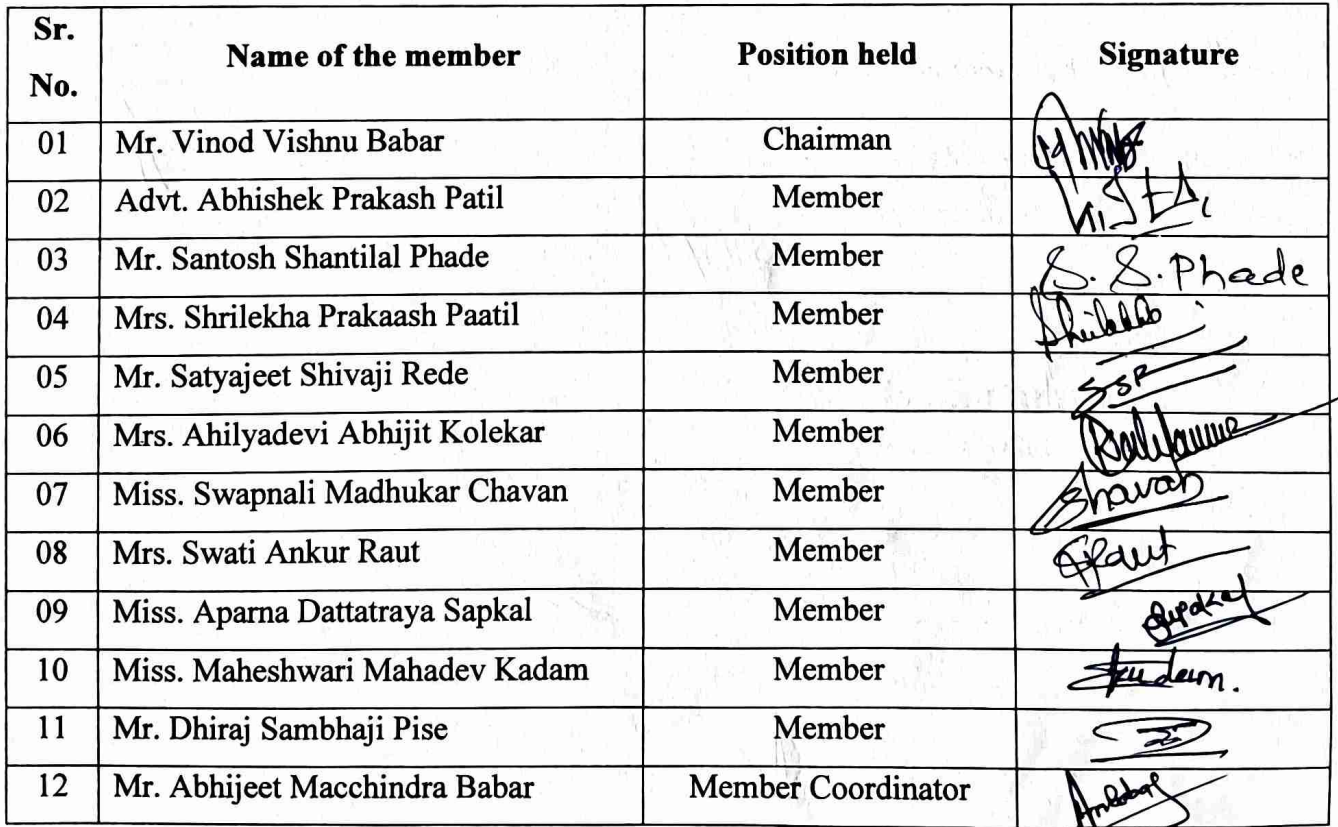 Sr. No. Name of the member Position held Signature
01 Mr. Vinod Vishnu Babar Chairman
02 Advt. Abhishek Prakash Patil Member
03 Mr. Santosh Shantilal Phade Member S. S. Phade
04 Mrs. Shrilekha Prakaash Paatil Member Shrilekha
05 Mr. Satyajeet Shivaji Rede Member SSR
06 Mrs. Ahilyadevi Abhijit Kolekar Member
07 Miss. Swapnali Madhukar Chavan Member Chavan
08 Mrs. Swati Ankur Raut Member Raut
09 Miss. Aparna Dattatraya Sapkal Member
10 Miss. Maheshwari Mahadev Kadam Member
11 Mr. Dhiraj Sambhaji Pise Member
12 Mr. Abhijeet Macchindra Babar Member Coordinator